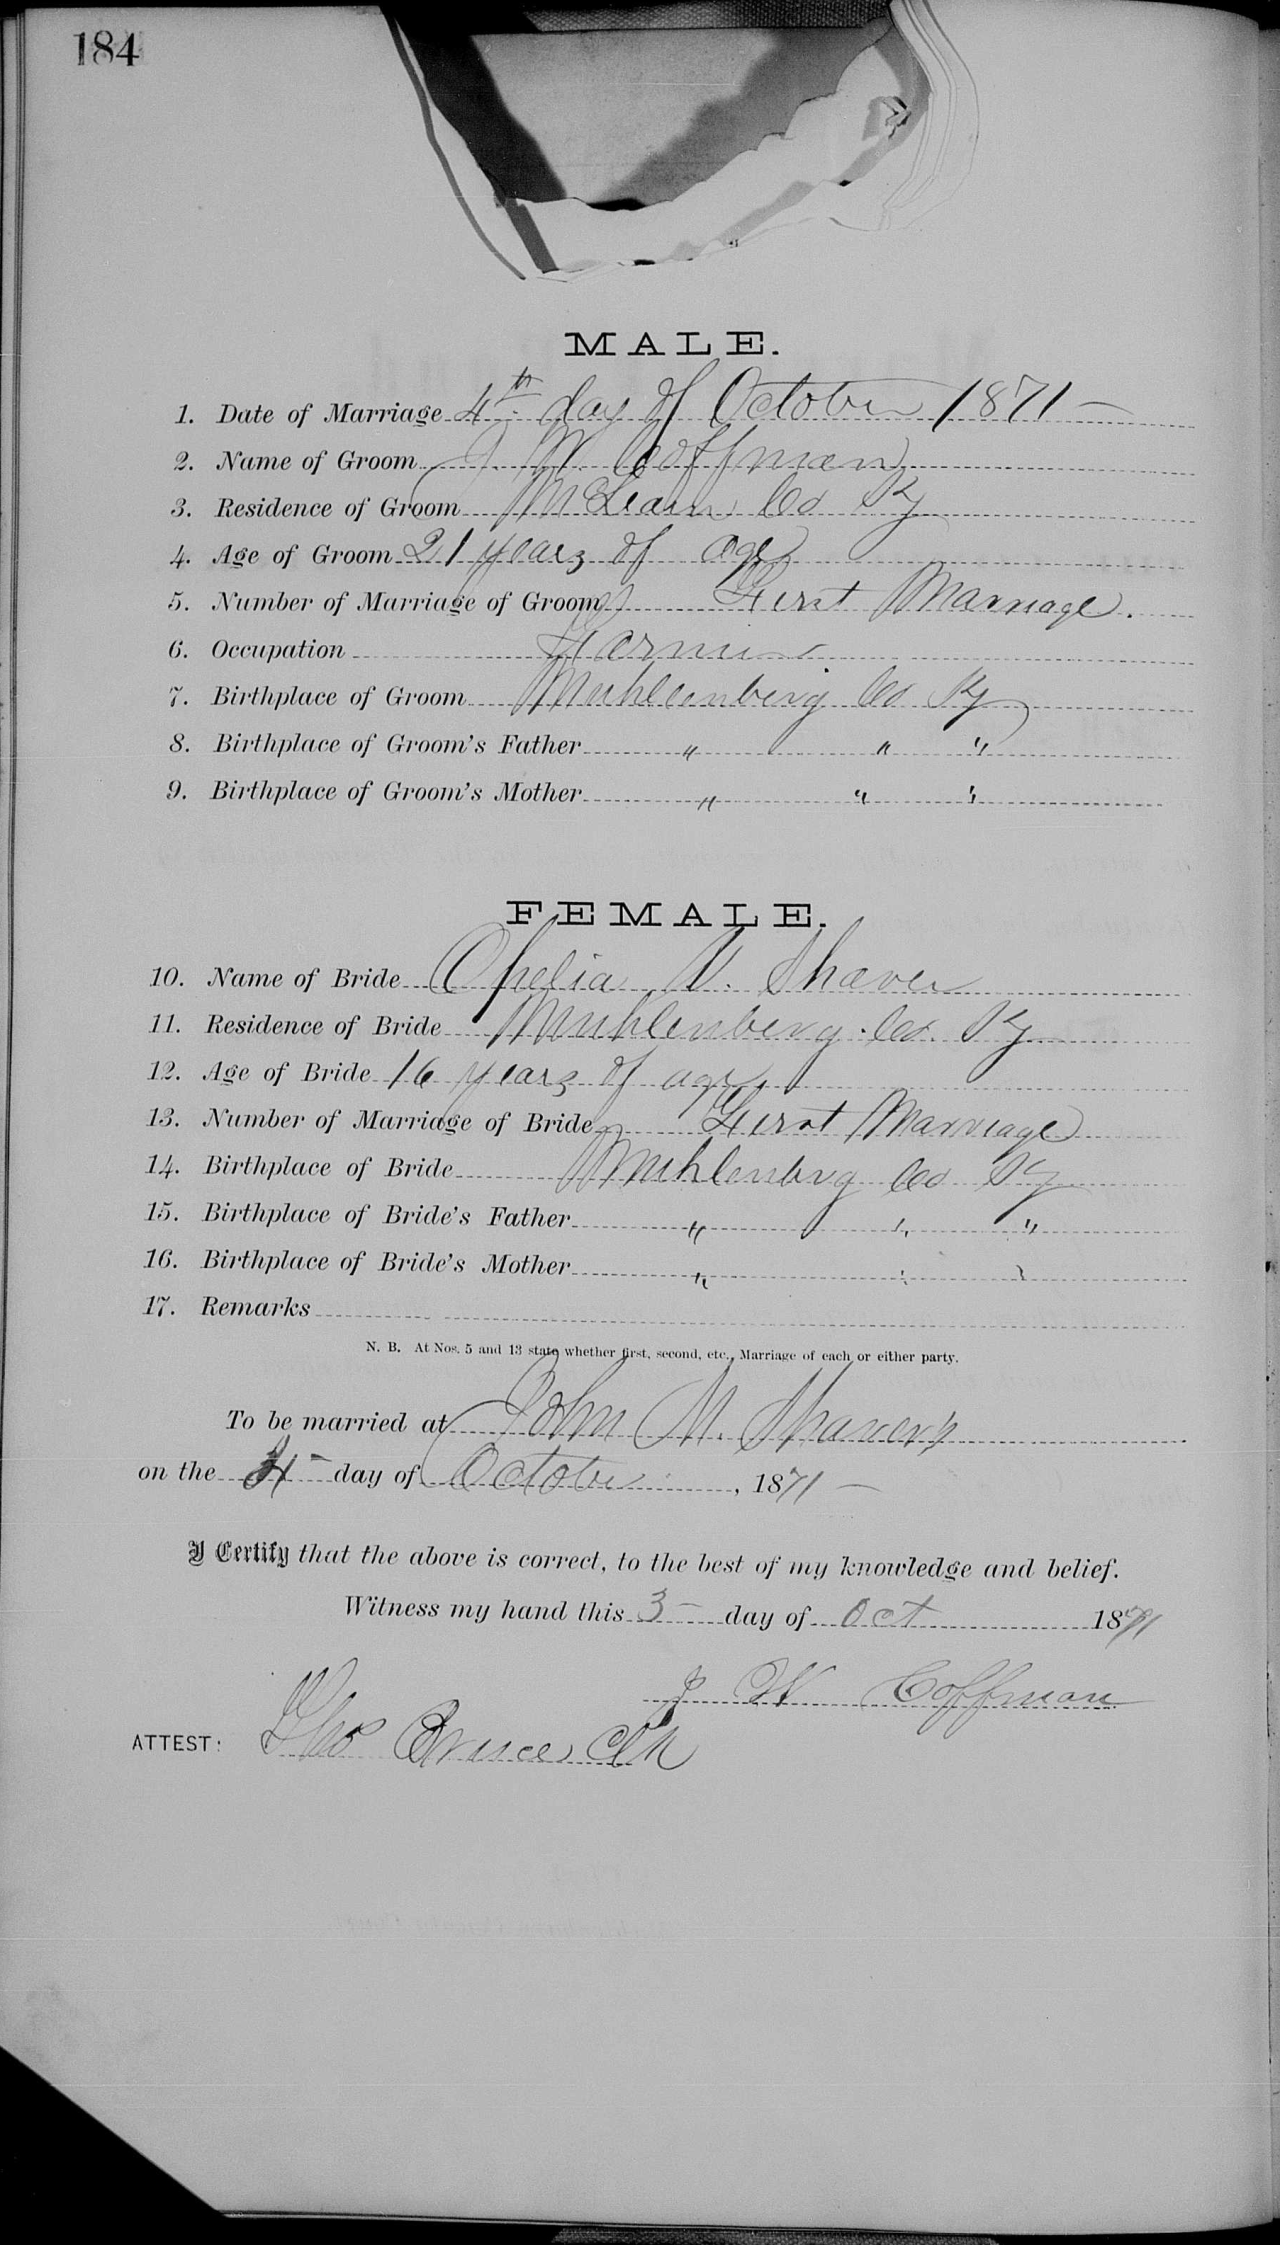 184
MALE.
1. Date of Marriage 4th day of October 1871 —
2. Name of Groom J. W. Coffman
3. Residence of Groom McLean Co Ky
4. Age of Groom 21 years of age
5. Number of Marriage of Groom First Marriage.
6. Occupation Farmer
7. Birthplace of Groom Muhlenberg Co Ky
8. Birthplace of Groom's Father " " "
9. Birthplace of Groom's Mother " " "
FEMALE.
10. Name of Bride Ophelia V. Shaver
11. Residence of Bride Muhlenberg Co. Ky
12. Age of Bride 16 years of age
13. Number of Marriage of Bride First Marriage
14. Birthplace of Bride Muhlenbrg Co Ky
15. Birthplace of Bride's Father " " "
16. Birthplace of Bride's Mother " " "
17. Remarks
N. B. At Nos. 5 and 13 state whether first, second, etc., Marriage of each or either party.
To be married at John M. Shaver's
on the 4 — day of October, 1871 —
I Certify that the above is correct, to the best of my knowledge and belief.
Witness my hand this 3 — day of Oct 1871
J W Coffman
ATTEST: Thos Bruce Clk